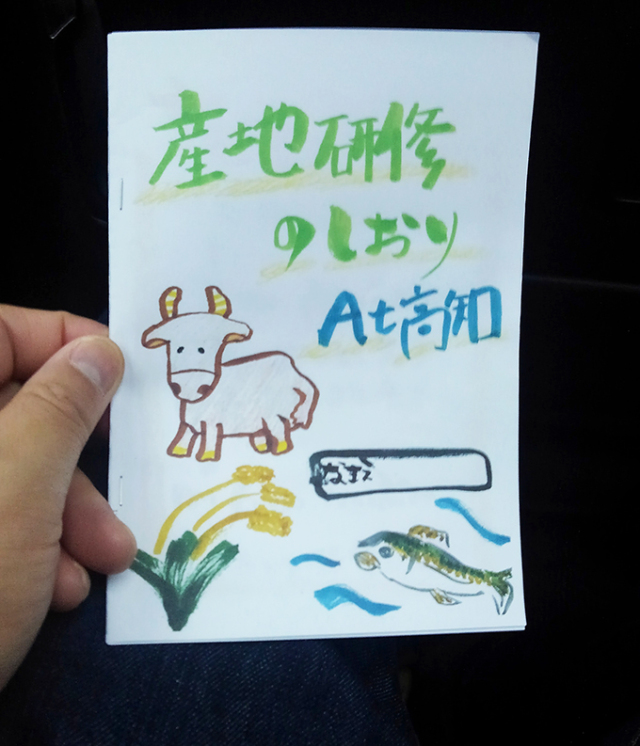 産地研修
のしおり
At高知
なまえ